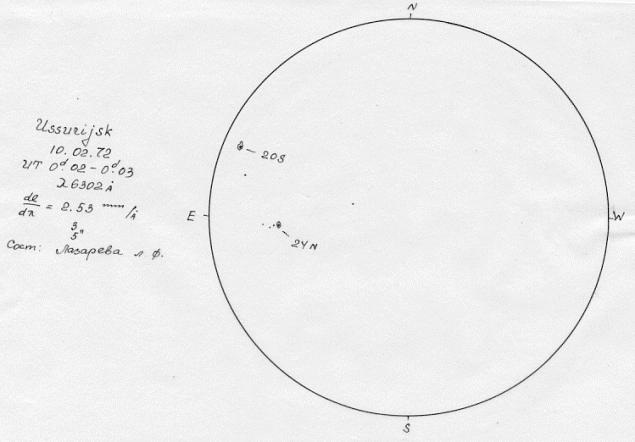 N
Ussurijsk
10.02.72
UT 0ᵈ.02 – 0ᵈ.03
λ 6302 Å
dl/dλ = 2.53 mm/Å
3
5"
Сост: Лазарева Л Ф.
20S
E
W
24N
S